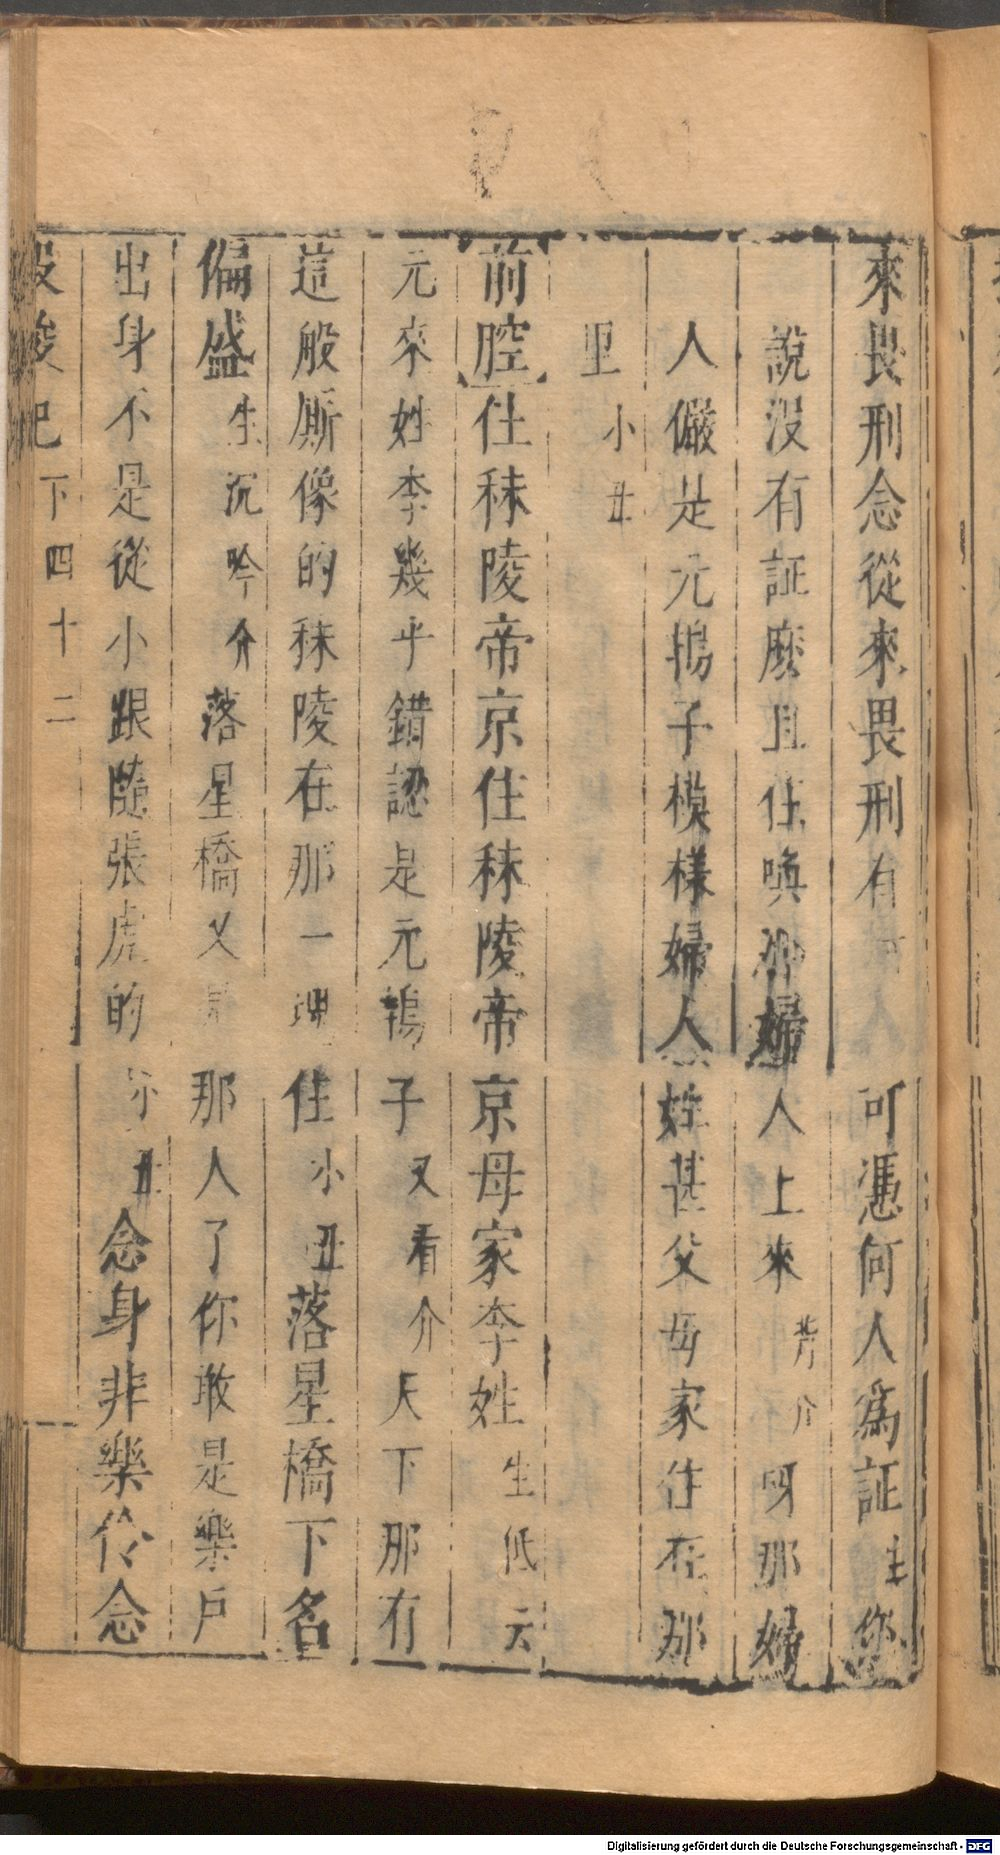 來畏刑念從來畏刑有何人可憑何人爲証生您
說没有証麽且住喚那婦人上來芳介呀那婦
人儼是元鴇子模樣婦人姓甚父母家住在那
里小丑
前腔仕秣陵帝京住秣陵帝京母家李姓生低云
元來姓李幾乎錯認是元鴇子又看介天下那有
這般厮像的秣陵在那一里住小丑落星橋下名
偏盛生沉吟介落星橋又是那人了你敢是樂户
出身不是從小跟隨張虎的小丑念身非樂伶念
投梭記下四十二
Digitalisierung gefördert durch die Deutsche Forschungsgemeinschaft - DFG